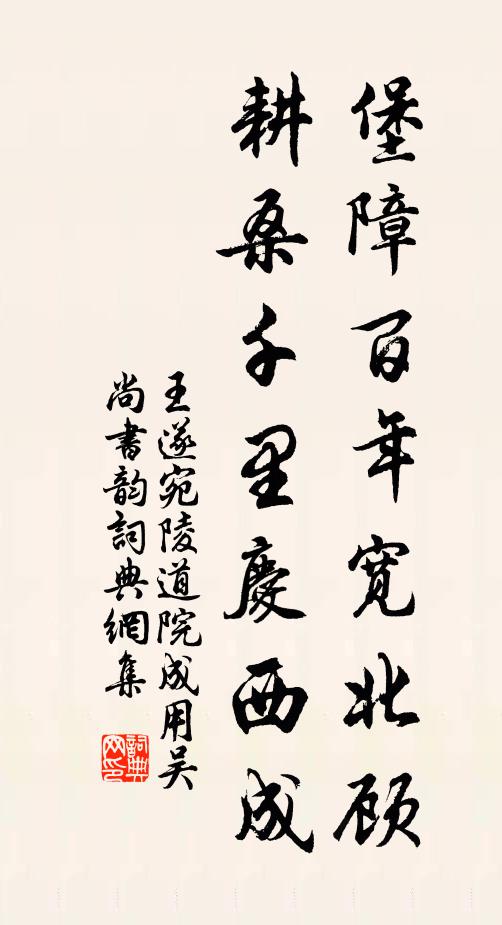 堡障百年寬北顾
耕桑千里慶西成
王遂宛陵道院成用吴
尚書韵詞典網集
詞典
网印